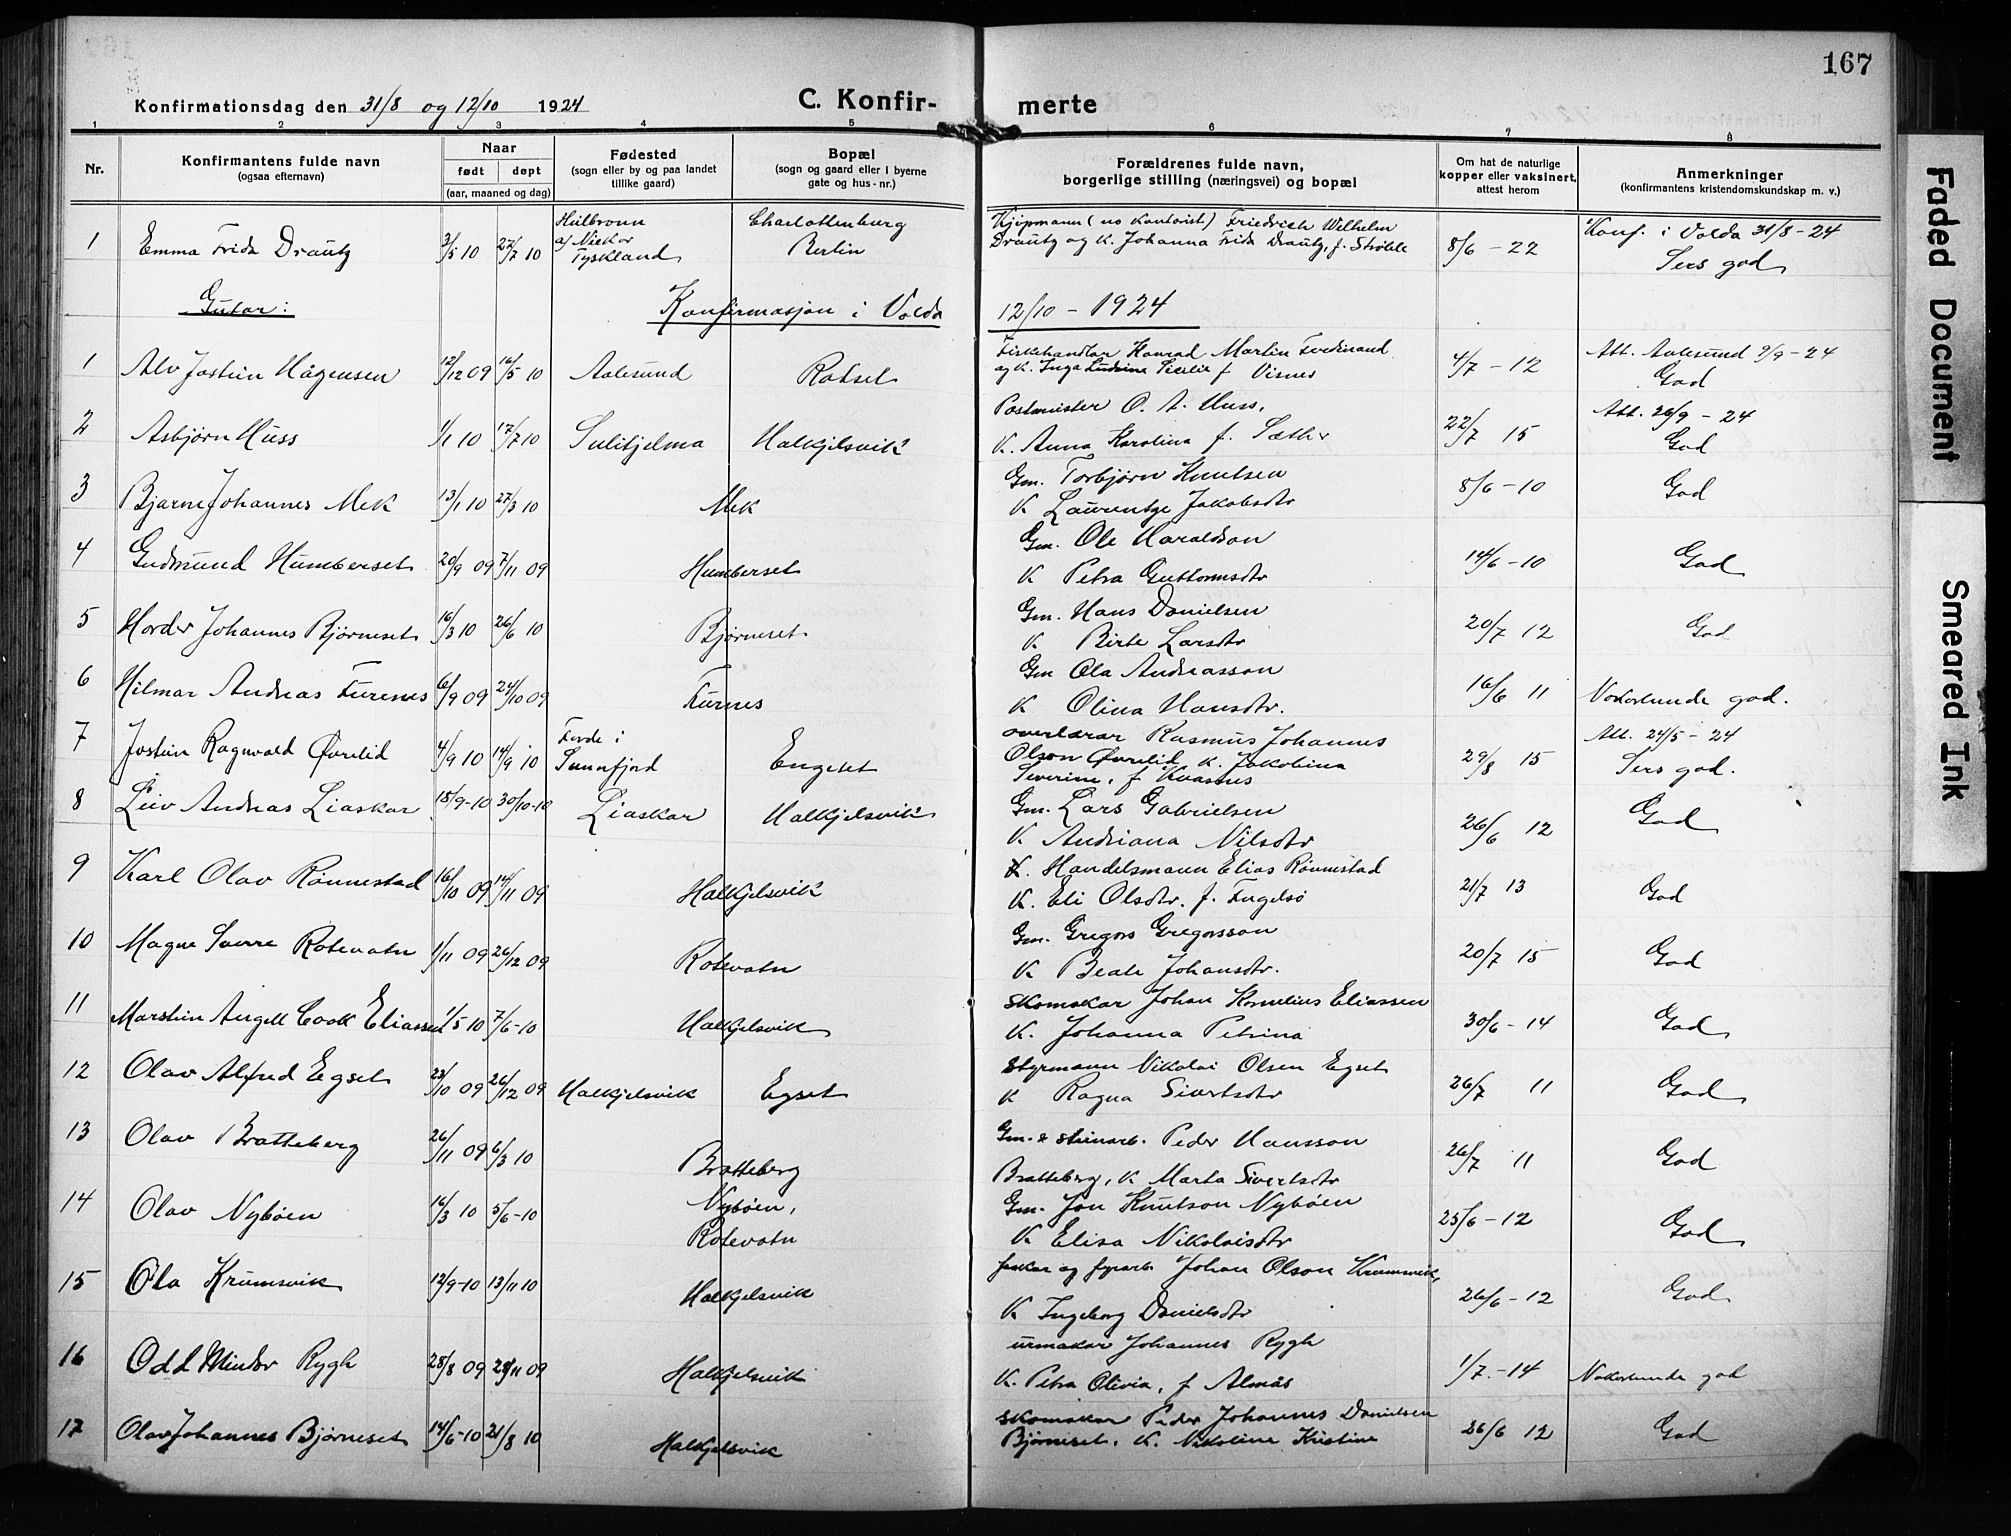 167
Konfirmationsdag den 31/8 og 12/10 1924
C. Konfirmerte
1 2 3 4 5 6 7 8
Nr.
Konfirmantens fulde navn
(ogsaa efternavn)
Naar
født døpt
(aar, maaned og dag)
Fødested
(sogn eller by og paa landet
tillike gaard)
Bopæl
(sogn og gaard eller i byerne
gate og hus - nr.)
Forældrenes fulde navn,
borgerlige stilling (næringsvei) og bopæl
Om hat de naturlige
kopper eller vaksinert,
attest herom
Anmerkninger
(konfirmantens kristendomskundskap m. v.)
1 Emma Frida Drautz 3/5 10 27/7 10 Heilbronn a/ Neckar Tyskland Charlottenburg Berlin
Kjøpmann (no kontorist) Friedrich Wilhelm
Drautz og K. Johanna Frida Drautz, f. Ströble 8/6 - 22 Konf. i Volda 31/8 - 24
Sers god
Gutar: Konfirmasjon i Volda 12/10 - 1924
1 Alv Jostein Hågensen 12/12 09 16/5 10 Aalesund Rotset
Fiskehandlar Konrad Martin Ferdinand
og K. Inga Ludvine Secilie f Visnes 4/7 - 12 Att. Aalesund 9/9 - 24
God
2 Asbjørn Huss 1/1 10 17/7 10 Sulitjelma Halkjelsvik
Postmeister O. A. Huss,
K. Anna Karolina f. Sæther 22/7 15 Att. 26/9 - 24
God
3 Bjarne Johannes Mek 13/1 10 27/3 10 Mek
Gm. Torbjørn Knutsen
K Laurentze Jakobsdtr 8/6 - 10 God
4 Gudmund Humberset 20/9 09 7/11 09 Humberset
Gm. Ole Haraldson
K Petra Guttormsdtr 14/6 - 10 God
5 Hordor Johannes Bjørneset 16/3 10 26/6 10 Bjørneset
Gm. Hans Danielsen
K Birte Larsdtr 20/7 12 God
6 Hilmar Andreas Furenes 6/9 09 24/10 09 Furnes
Gm Ola Andreasson
K Olina Hansdtr. 16/6 11 Nokorlunde god.
7 Jostein Ragnvald Øvrelid 4/9 10 14/9 10 Førde i Sunnfjord Engeset
overlærar Rasmus Johannes
Olson Øvrelid K. Jakobina
Severine, f Kvasnes 29/8 15 Att. 24/5 - 24
Sers god.
8 Leiv Andreas Liaskar 18/9-10 30/10-10 Liaskar Halkjelsvik
Gm. Lars Gabrielsen
K. Andriana Nilsdtr 26/6 12 God
9 Karl Olav Rönnestad 16/10 09 14/11 09 Halkjelsvik
K. Handelsmann Elias Rönnestad
K. Eli Olsdtr. f. Fugelsö 21/7 13 God
10 Magne Sverre Rotevatn 1/11 09 26/12 09 Rotevatn
Gm. Gregors Gregorsson
K Beate Johansdtr. 20/7 15 God
11 Marstein Angell Cook Eliassen 1/5 10 7/6-10 Halkjelsvik
Skomakar Johan Kornelius Eliassen
K. Johanna Petrina 30/6 - 14 God
12 Olav Alfred Egset 23/10 09 26/12 09 Halkjelsvik Egset
Styrmann Nikolai Olsen Egset
K Ragna Sivertsdtr 26/7 11 God
13 Olav Bratteberg 26/11 09 6/3 10 Bratteberg
Gm. & steinarb. Peder Hansson
Bratteberg, K. Marta Sivertsdtr 26/7 11 God
14 Olav Nybøen 16/3 10 5/6-10 Nybøen,
Rotevatn
Gm. Jon Knutson Nybøen
K Elisa Nikolaisdtr 25/6 - 12 God
15 Ola Krumsvik 12/9-10 13/11 10 Halkjelsvik
og Johan Olson Krumsvik,
K Ingeborg Danielsdtr 26/6 - 12 God
16 Odd Mindor Rygh 28/8 09 28/11 09 Halkjelsvik
urmakar Johannes Rygh
K. Petra Olivia, f Almås 1/7. - 14 Nokorlunde god
17 Olav Johannes Bjørneset 14/6-10 21/8 10 Halkjelsvik
Skomakar Peder Johannes Danielsen
Bjørneset, K. Nikoline Kristine 26/6 12 God
Faded Document
Smeared Ink